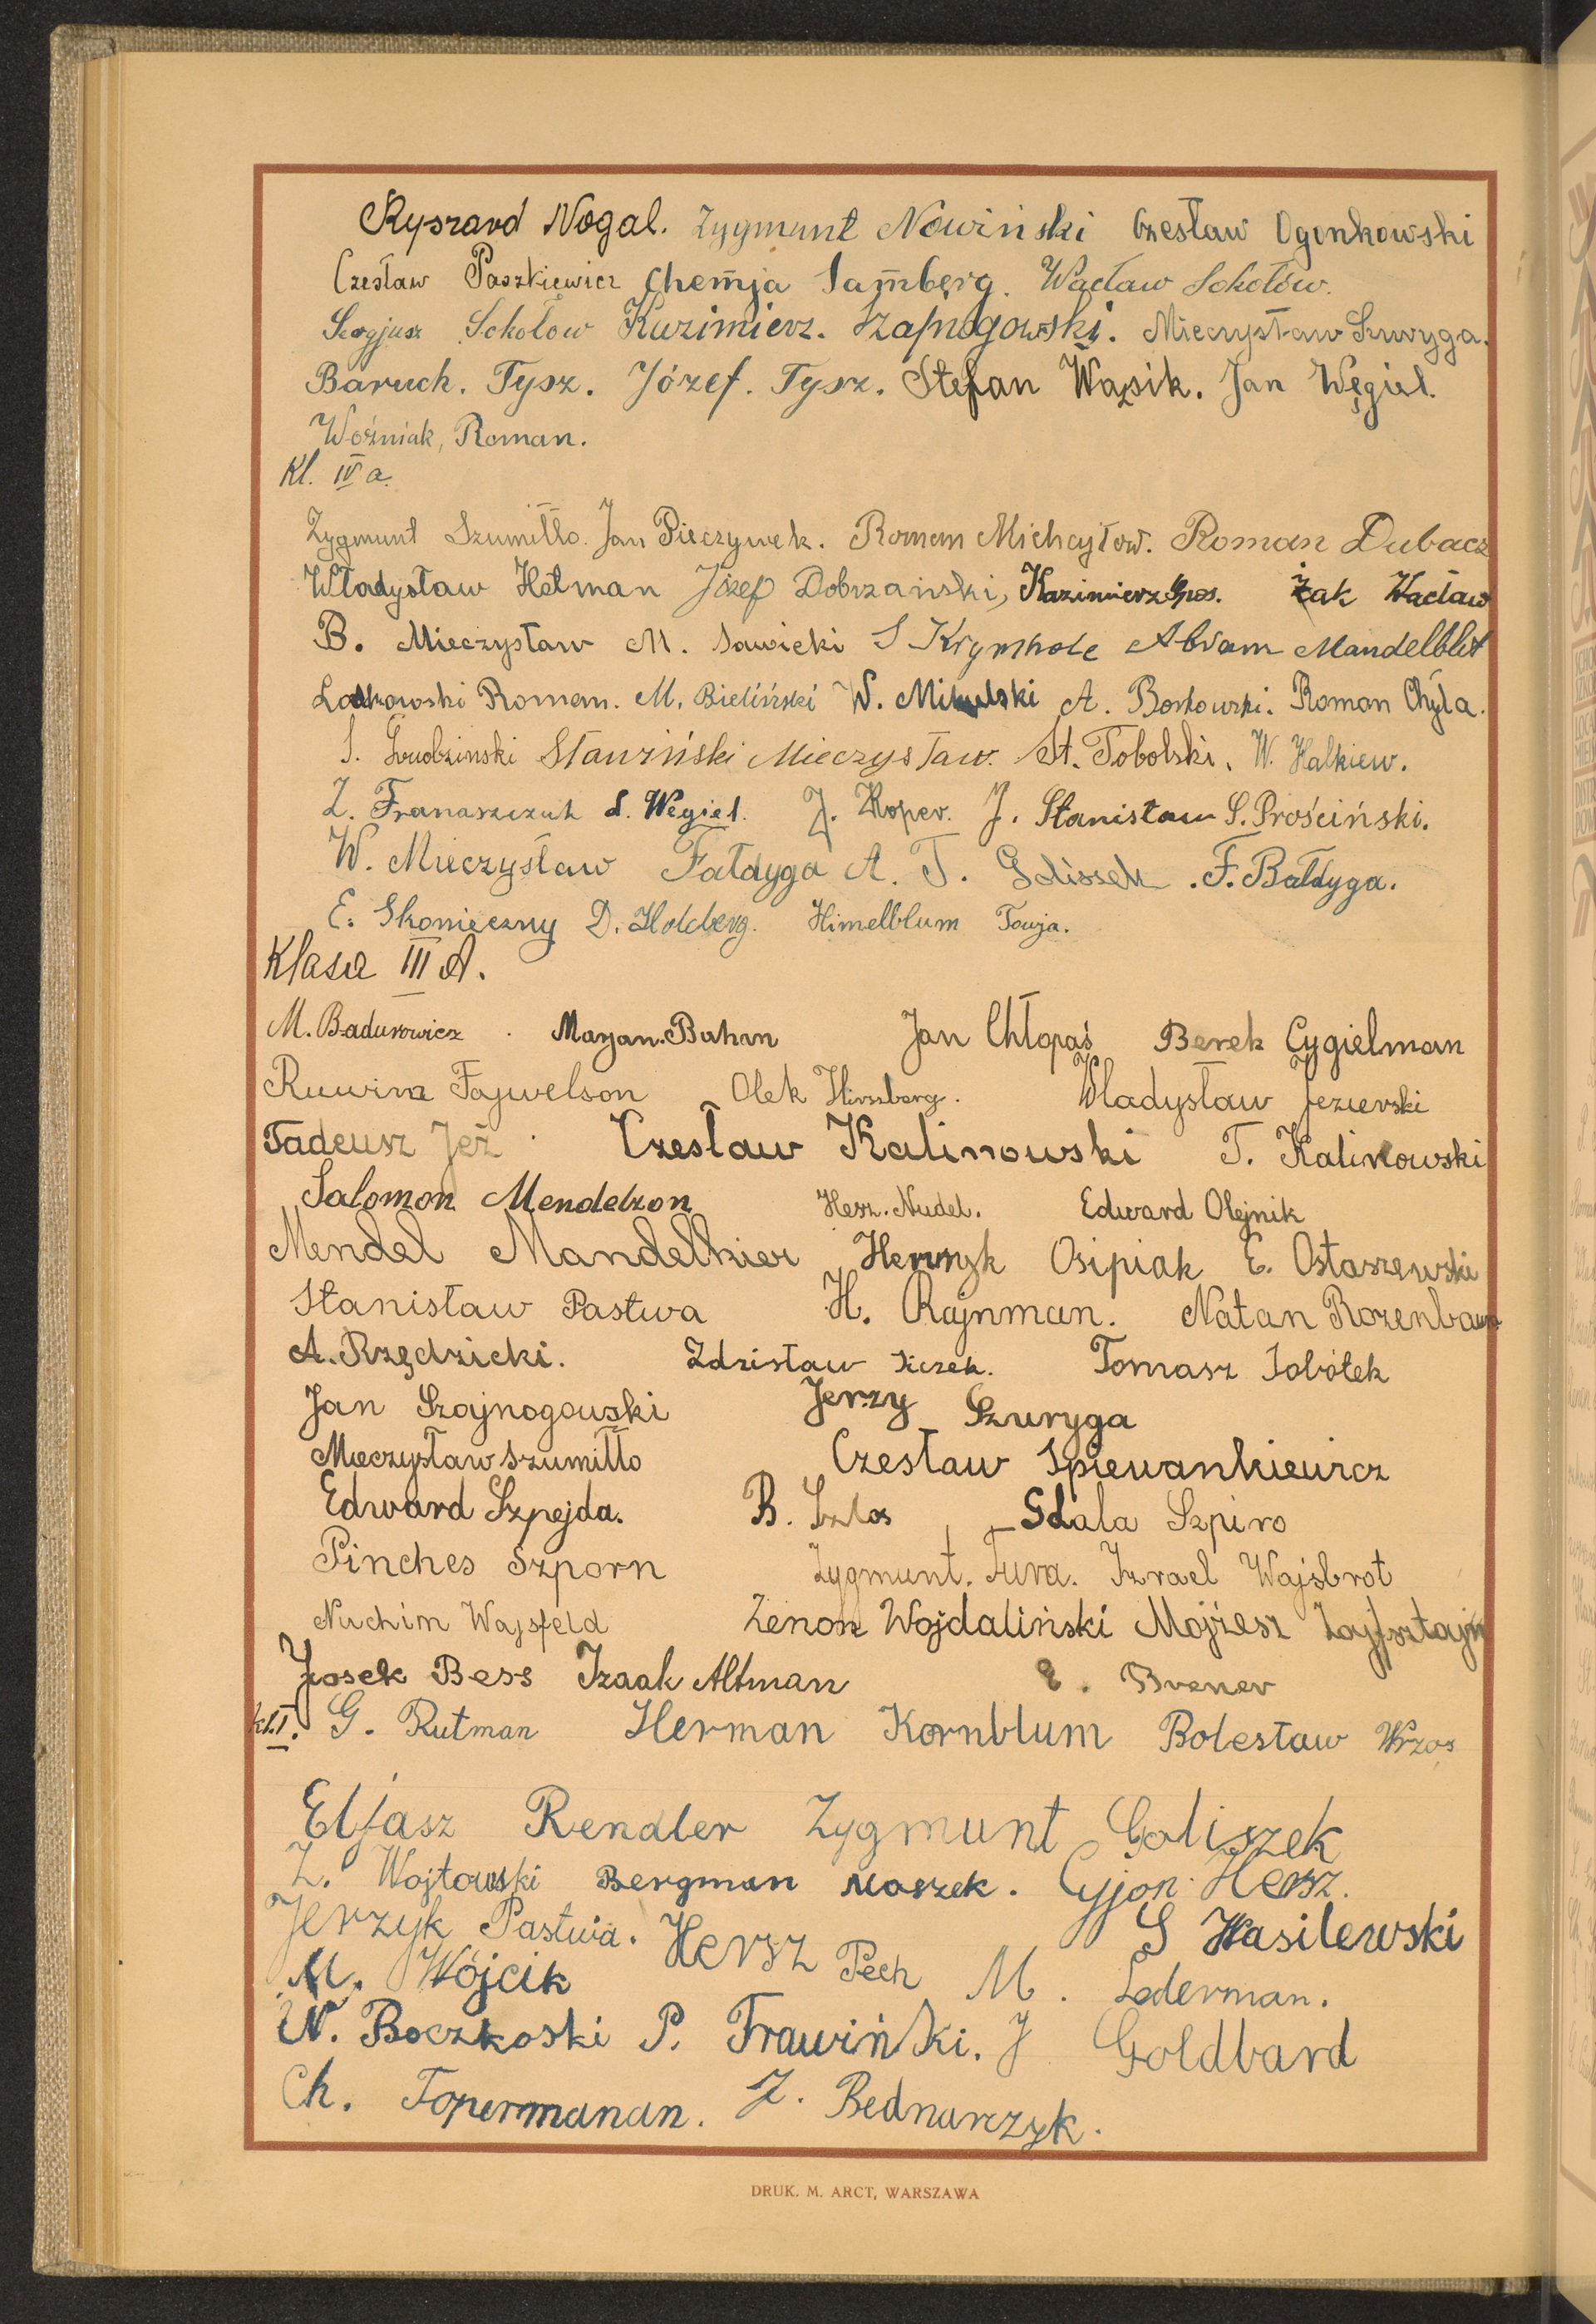 Ryszard Nogal. Zygmunt Nowiński Czesław Ogonkowski
Czesław Paszkiewicz Chemja Samberg. Wacław Sokołów.
Sergjusz Sokołow Kazimierz. Szajnogowski. Mieczysław Szuryga.
Baruch. Tysz. Józef. Tysz. Stefan Wąsik. Jan Węgiel.
Woźniak, Roman.
Kl. IV a.
Zygmunt Szumiłło. Jan Pieczywek. Roman Michajłow. Roman Dubacz
Władysław Hetman Józef Dobrzański, Kazimierz Żak Wacław
B. Mieczysław M. Sawicki S Krymholc Abram Mandelblit
Roman. M. Bieliński W. Mikulski A. Borkowski. Roman Chyla.
S. Stawiński Mieczysław. St. Tobolski. W. Halkiew.
Z. Franaszczuk S. Węgiel. J. Koper. J. Stanisław S. Prościński.
W. Mieczysław Fałdyga A. T. Golissek. F. Bałdyga.
E. Skonieczny D. Holcberg. Himelblum Towja.
Klasa III A.
M. Badurowicz. Maryan. Bahrn Jan Chłopaś Berek Cygielman
Ruwin Fajwelson Olek Hirszberg. Władysław Jezierski
Tadeusz Jeż. Czesław Kalinowski T. Kalinowski
Salomon Mendelzon Hesz. Nudel. Edward Olejnik
Mendel Mandelkier Henryk Osipiak E. Ostaszewski
Stanisław Pastwa H. Rajnman. Natan Rozenbaum
A. Rzędzicki. Zdzisław Siczek. Tomasz Sobótek
Jan Szajnogowski Jerzy Szuryga
Mieczysław Szumiłło Czesław Spiewankiewicz
Edward Szpejda. B. Szlos Gdala Szpiro
Pinches Szporn Zygmunt. Tura. Izrael Wajsbrot
Nuchim Wajsfeld Zenon Wojdaliński Mojżesz Zajfsztajn
Josek Bess Izaak Altman E. Brener
kl. I. G. Rutman Herman Kornblum Bolesław Wrzos
Eljasz Rendler Zygmunt Goliszek
Z. Wojtowski Bergman Moszek. Cyjon Hersz.
Jerzyk Pastwia. Hersz Pech S Wasilewski
M. Wójcik M. Lederman.
W. Boczkoski P. Trawiński. J Goldbard
Ch. Topermanan. Z. Bednarczyk.
DRUK. M. ARCT, WARSZAWA